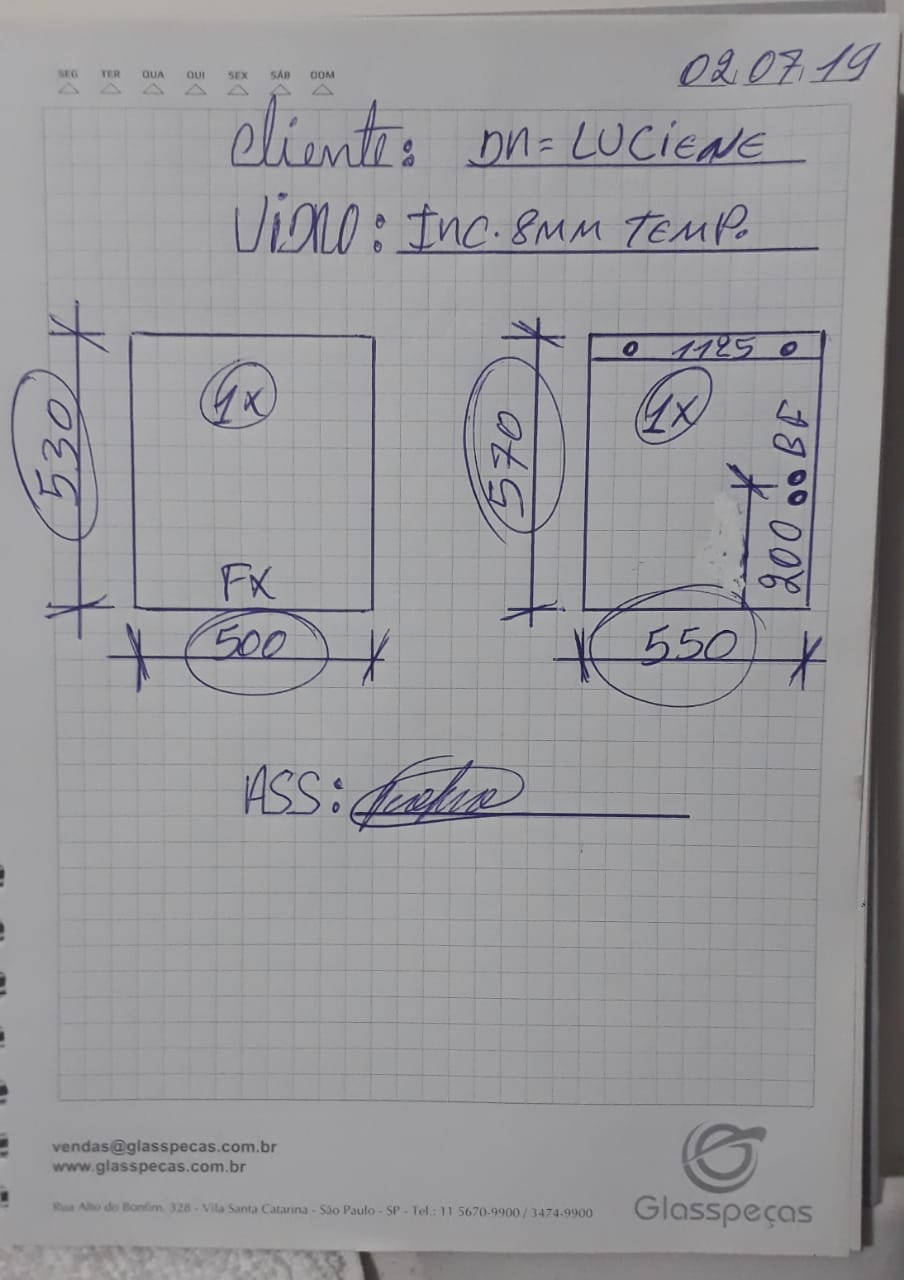 02.07.19
SEG TER QUA QUI SEX SÁB DOM
Cliente: Dn= LUCIENE
VIDRO: INC. 8MM TEMP.
530
1x
FX
500
570
1125
1x
200 BF
550
ASS:
vendas@glasspecas.com.br
www.glasspecas.com.br
Rua Alto do Bonfim, 328 - Vila Santa Catarina - São Paulo - SP - Tel.: 11 5670-9900 / 3474-9900
Glasspeças